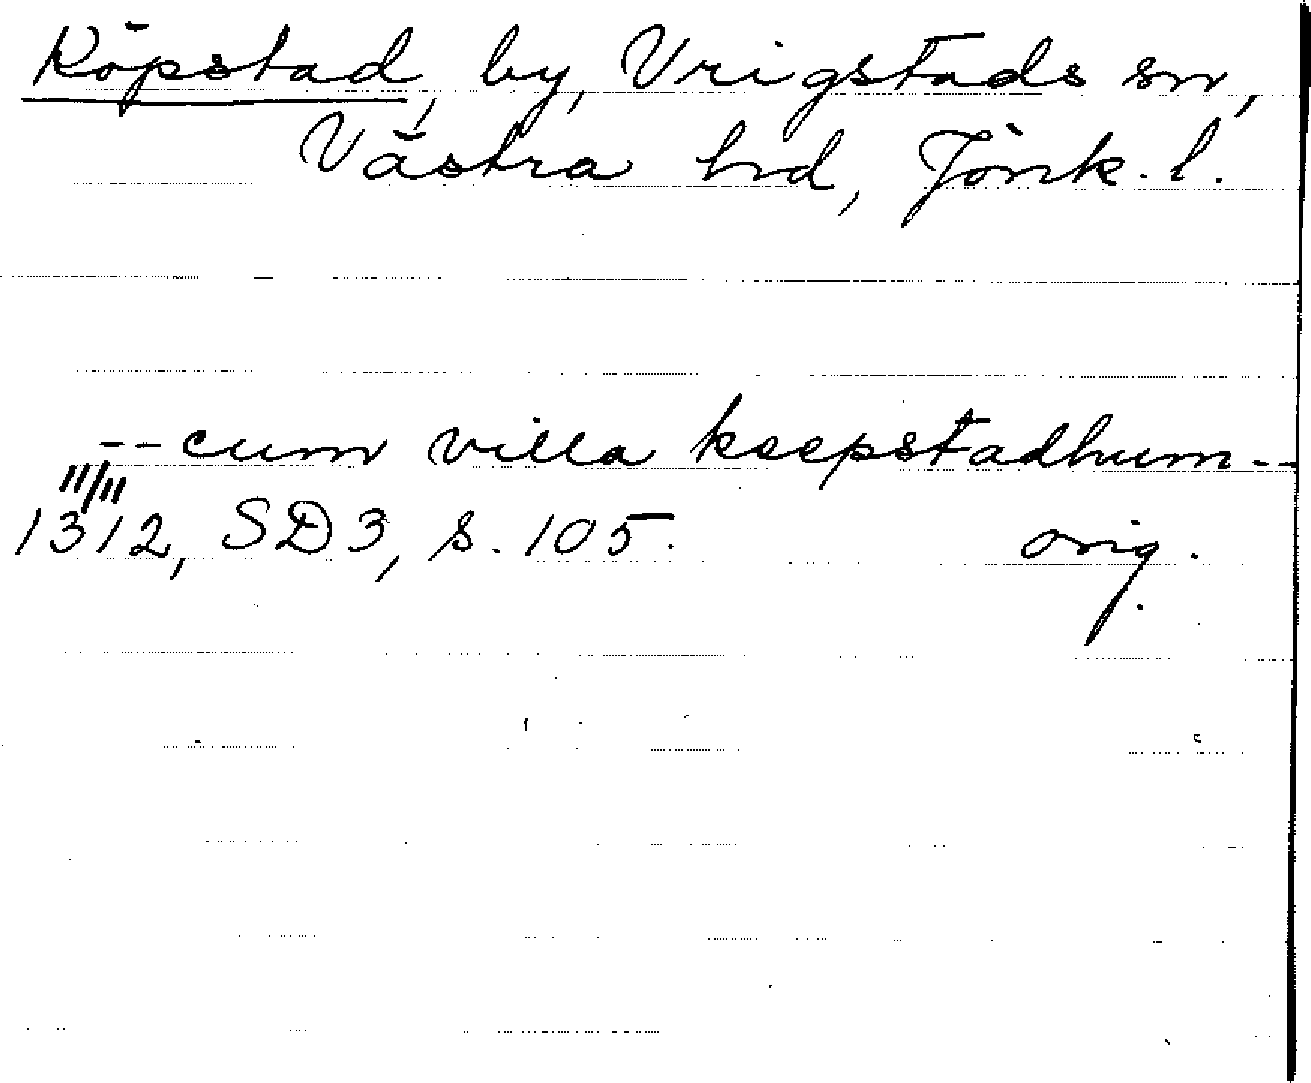 Köpstad, by, Vrigstads sn,
Västra hd, Jönk. l.
-- cum villa koepstadhum --
11/11
1312, SD3, s. 105. orig.